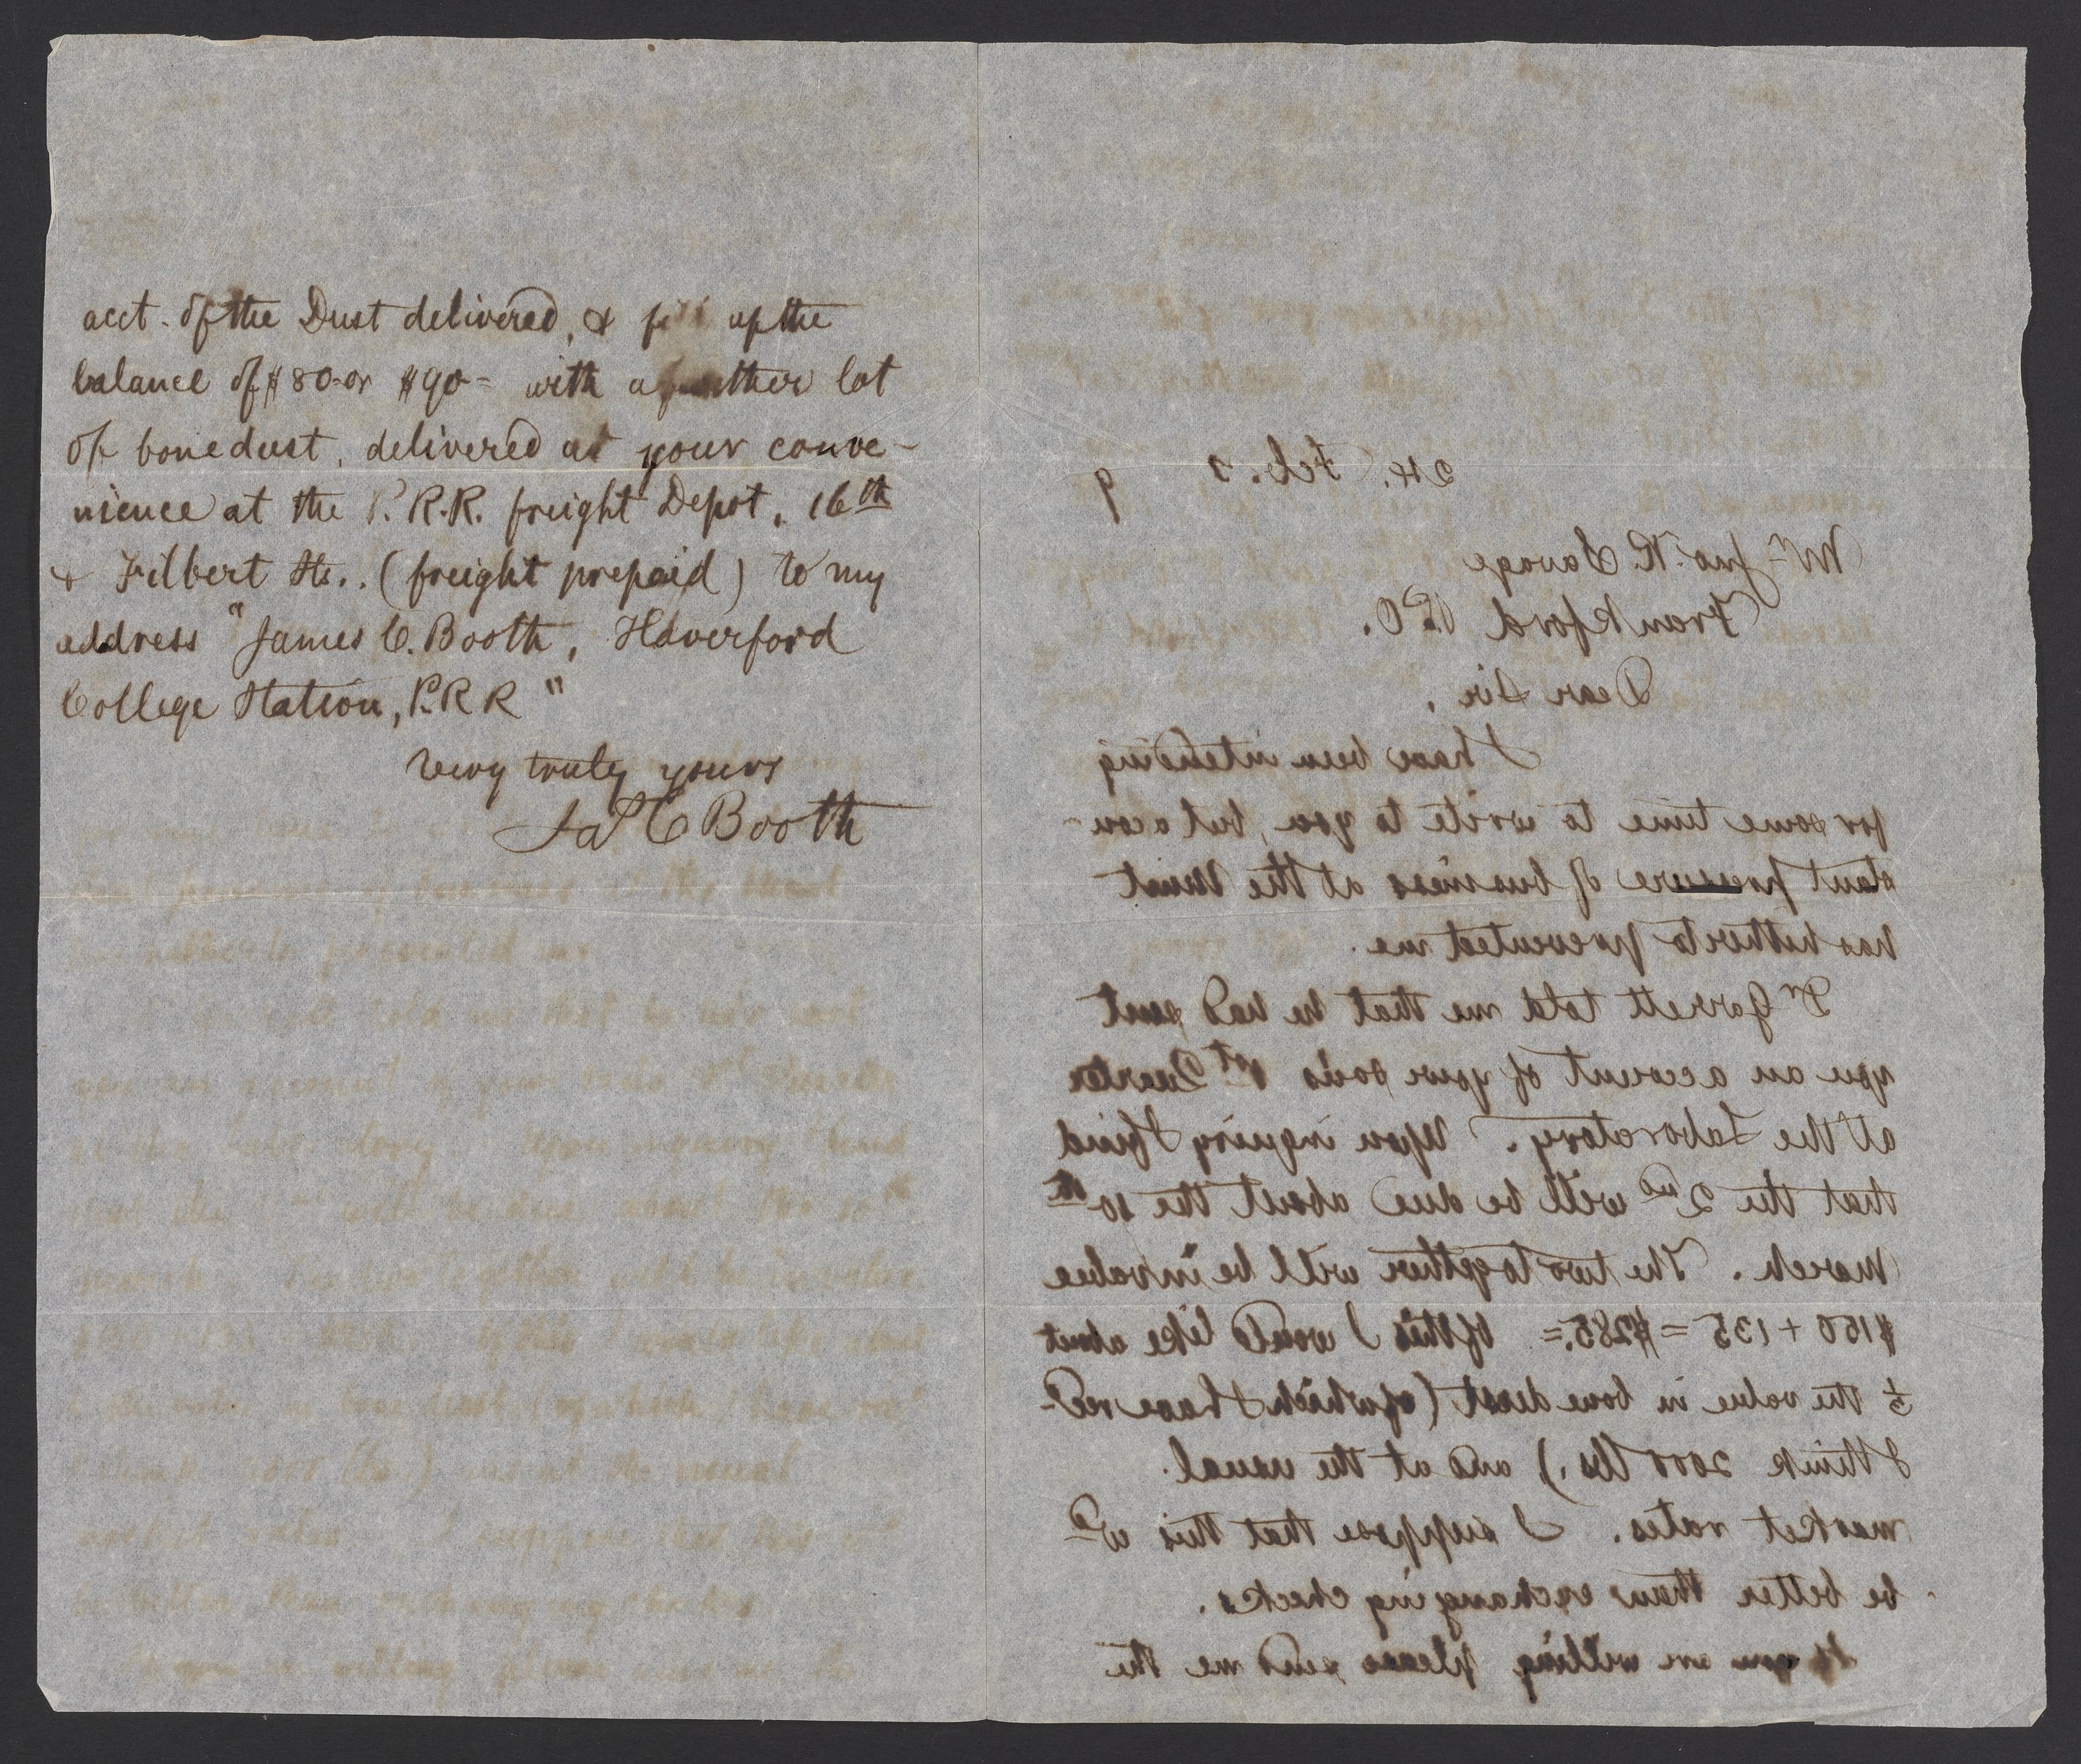 acct. of the Dust delivered, & fill up the
balance of $80- or $90- with another lot
of bonedust, delivered at your conve-
nience at the P.R.R. freight Depot, 16th
& Filbert Sts.. (freight prepaid) to my
address "James C. Booth, Haverford
College Station, P.R R"
Very truly yours
Jas C Booth
24. Feb.
Mr Jno. R. Savage
Frankford P.O.
Dear Sir,
I have been intending
for some time to write to you, but a con-
stant pressure of business at the Mint
has hitherto prevented me.
Dr Garrett told me that he had sent
you an account of your son's 1st Quarter
at the Laboratory. Upon inquiry I find
that the 2nd will be due about the 10th
March. The two together will be in value
$150 + 135 = $285.= Of this I would like about
½ the value in bone dust (of which I have recd
I think 2000 lbs.) and at the usual
market rates. I suppose that this wd
be better than exchanging checks.
If you are willing please send me the